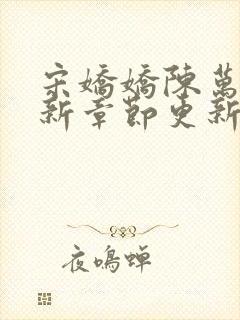 宋嬌嬌陳萬
新章節更新
夜鳴蟬